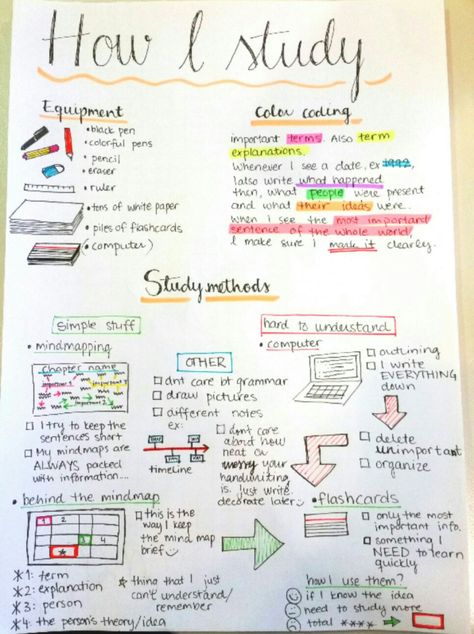 How I study
Equipment
• black pen
• colorful pens
• pencil
• eraser
• ruler
• tons of white paper
• piles of flashcards
• computer)
Color coding
important terms. Also term
explanations.
Whenever I see a date, ex 1992,
I also write what happened
then, what people were present
and what their ideas were.
When I see the most important
sentence of the whole world,
I make sure I mark it clearly.
Study methods
simple stuff
• mindmapping
Chapter name
important 1
important 2
I try to keep the
sentences short
My mindmaps are
ALWAYS packed
with information....
OTHER
dnt care bt grammar
draw pictures
different notes
ex:
timeline
dont care
about how
neat or
messy your
handwriting
is. just write
decorate later
hard to understand
• computer
outlining
I write
EVERYTHING
down
delete
unimportant
organize
• behind the mindmap
1 2
3 4
*
this is the
way I keep
the mind map
brief
*1: term
*2: explanation
*3: person
*4: the person's theory/idea
* thing that I just
can't understand/
remember
• flashcards
only the most
important info.
something I
NEED to learn
quickly
how I use them?
if I know the idea
need to study more
total ****